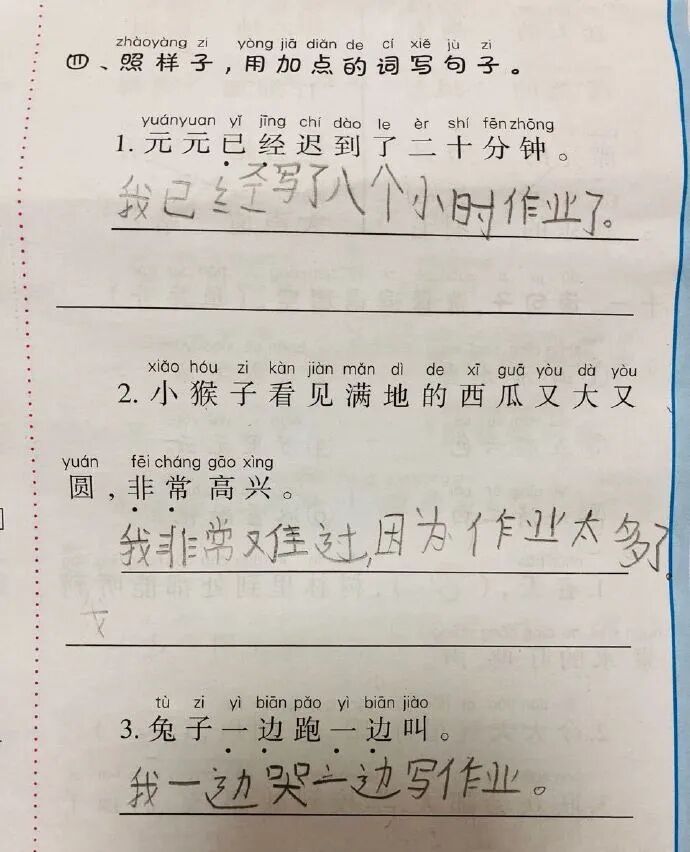 zhàoyàng zi yòng jiā diǎn de cí xiě jù zi
四、照样子，用加点的词写句子。
yuányuan yǐ jīng chí dào le èr shí fēn zhōng
1. 元元已经迟到了二十分钟。
我已经写了八个小时作业了。
xiǎo hóu zi kàn jiàn mǎn dì de xī guā yòu dà yòu
2. 小猴子看见满地的西瓜又大又
yuán fēi cháng gāo xìng
圆，非常高兴。
我非常难过,因为作业太多了
tù zi yì biān pǎo yì biān jiào
3. 兔子一边跑一边叫。
我一边哭一边写作业。